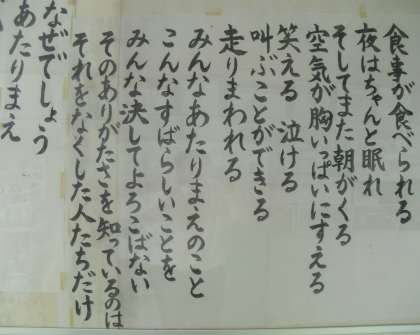 食事が食べられる
夜はちゃんと眠れ
そしてまた朝がくる
空気が胸いっぱいにすえる
笑える 泣ける
叫ぶことができる
走りまわれる
みんなあたりまえのこと
こんなすばらしいことを
みんな決してよろこばない
そのありがたさを知っているのは
それをなくした人たちだけ
なぜでしょう
あたりまえ